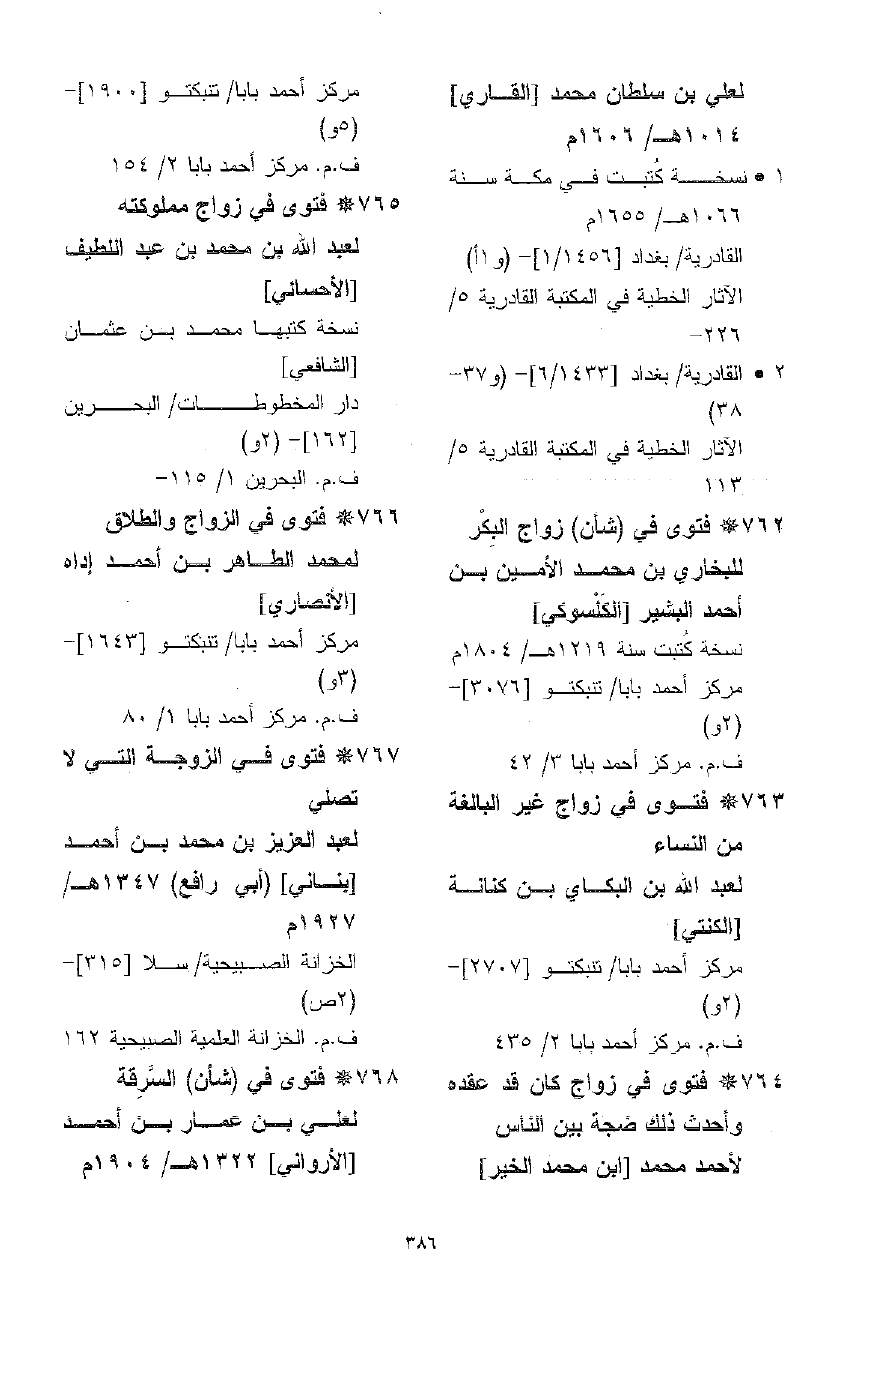 لعلي بن سلطان محمد [القاري]
١٠١٤هـ/ ١٦٠٦م
١ • نسخة كُتبت في مكة سنة
١٠٦٦هـ/ ١٦٥٥م
القادرية/ بغداد [١/١٤٥٦]- (و١أ)
الآثار الخطية في المكتبة القادرية ٥/
٢٢٦-
٢ • القادرية/ بغداد [٦/١٤٣٣]- (و٣٧-
٣٨)
الآثار الخطية في المكتبة القادرية ٥/
١١٣
٧٦٢* فتوى في (شأن) زواج البِكْر
للبخاري بن محمد الأمين بن
أحمد البشير [الكَلْسوكي]
نسخة كُتبت سنة ١٢١٩هـ/ ١٨٠٤م
مركز أحمد بابا/ تنبكتو [٣٠٧٦]-
(٢و)
ف.م. مركز أحمد بابا ٣/ ٤٢
٧٦٣* فتوى في زواج غير البالغة
من النساء
لعبد الله بن البكاي بن كنانة
[الكنتي]
مركز أحمد بابا/ تنبكتو [٢٧٠٧]-
(٢و)
ف.م. مركز أحمد بابا ٢/ ٤٣٥
٧٦٤* فتوى في زواج كان قد عقده
وأحدث ذلك ضجة بين الناس
لأحمد محمد [ابن محمد الخير]
مركز أحمد بابا/ تنبكتو [١٩٠٠]-
(٥و)
ف.م. مركز أحمد بابا ٢/ ١٥٤
٧٦٥* فتوى في زواج مملوكته
لعبد الله بن محمد بن عبد اللطيف
[الأحسائي]
نسخة كتبها محمد بن عثمان
[الشافعي]
دار المخطوطات/ البحرين
[١٦٢]- (٢و)
ف.م. البحرين ١/ ١١٥-
٧٦٦* فتوى في الزواج والطلاق
لمحمد الطاهر بن أحمد إداه
[الأنصاري]
مركز أحمد بابا/ تنبكتو [١٦٤٣]-
(٣و)
ف.م. مركز أحمد بابا ١/ ٨٠
٧٦٧* فتوى في الزوجة التي لا
تصلي
لعبد العزيز بن محمد بن أحمد
[بناني] (أبي رافع) ١٣٤٧هـ/
١٩٢٧م
الخزانة الصبيحية/ سلا [٣١٥]-
(٢ص)
ف.م. الخزانة العلمية الصبيحية ١٦٢
٧٦٨* فتوى في (شأن) السَّرِقة
لعلي بن عمار بن أحمد
[الأرواني] ١٣٢٢هـ/ ١٩٠٤م
٣٨٦